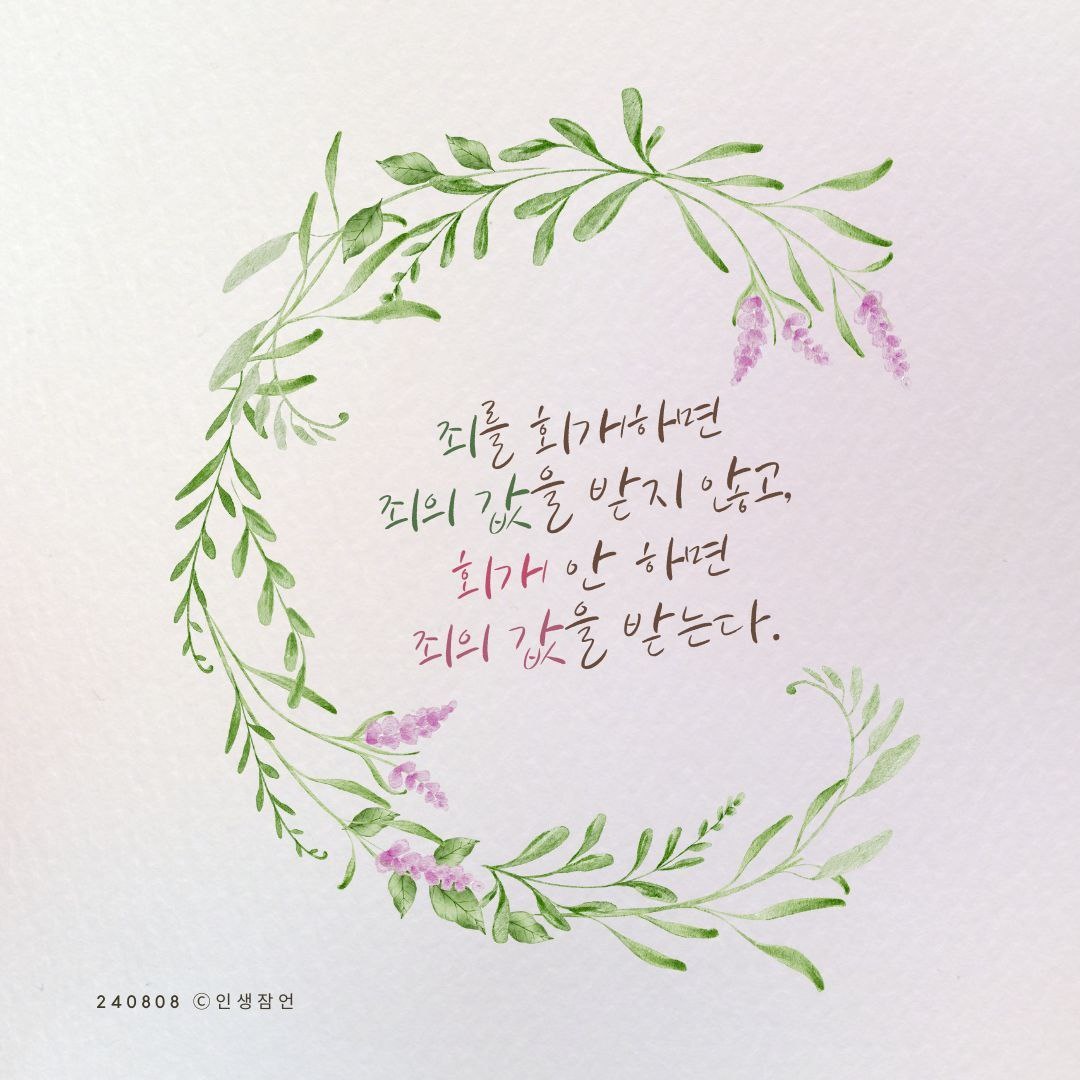 죄를 회개하면
죄의 값을 받지 않고,
회개 안 하면
죄의 값을 받는다.
240808 ⓒ인생잠언